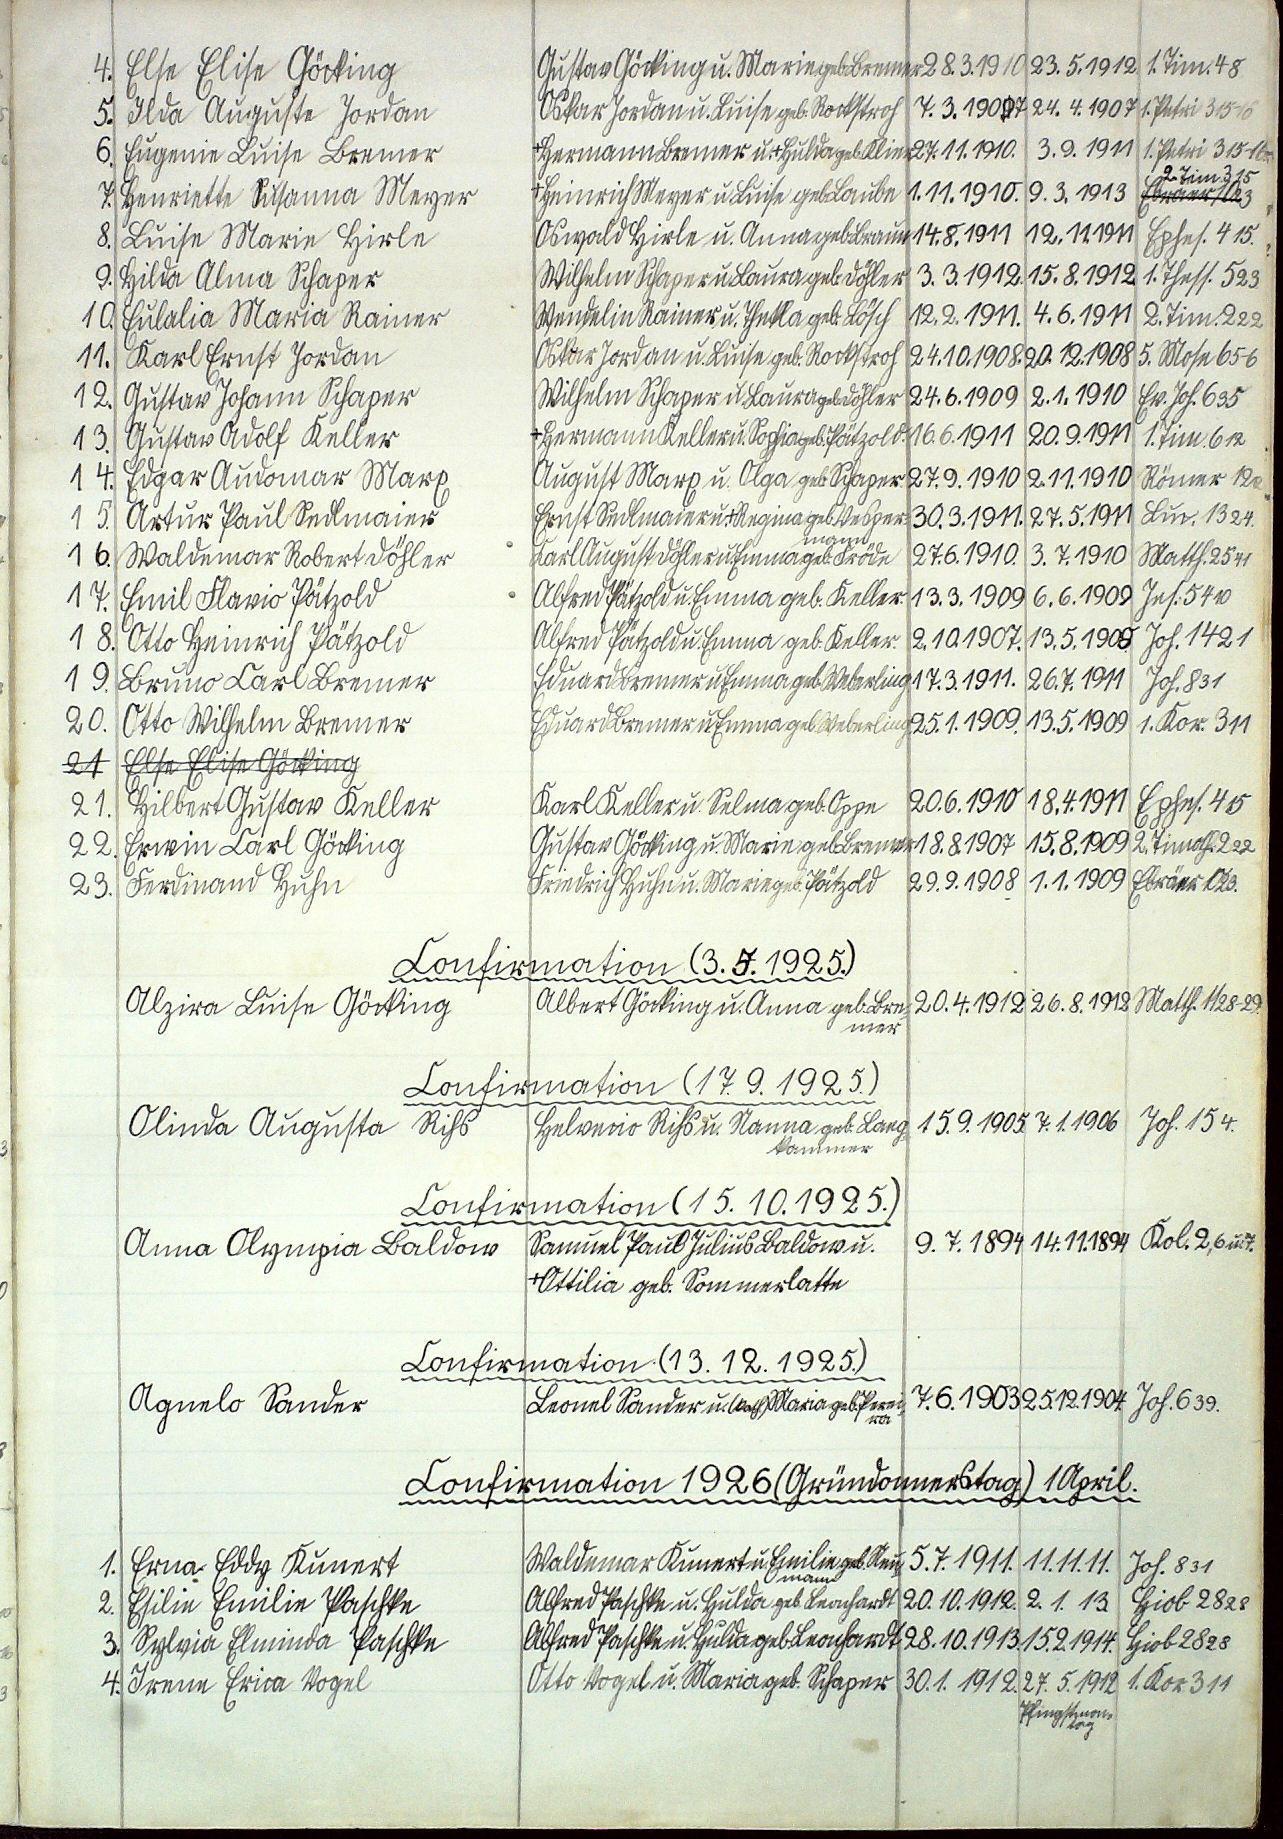 4. Else Elise Göcking Gustav Göcking u. Marie geb. Bremer 28.3.1910 23.5.1912 1. Tim. 4 8
5. Ilda Auguste Jordan Oskar Jordan u. Luise geb. Rockstroh 7.3.1907 24.4.1907 1. Petri 3 15-16
6. Eugenie Luise Bremer +Hermann Bremer u. +Hulda geb. Klier 27.11.1910. 3.9.1911 1. Petri 3 15-16
2. Tim. 3 15
7. Henriette Susanna Meyer +Heinrich Meyer u. Luise geb. Laube 1.11.1910. 9.3.1913 Ebräer 10 23
8. Luise Marie Hirle Oswald Hirle u. Anna geb. Braun 14.8.1911 12.11.1911 Ephes. 4 15.
9. Hilda Alma Schaper Wilhelm Schaper u. Laura geb. Döhler 3.3.1912. 15.8.1912 1. Thess. 5 23
10. Eulalia Maria Rainer Wendelin Rainer u. Thekla geb. Lösch 12.2.1911. 4.6.1911 2. Tim. 2 22
11. Karl Ernst Jordan Oskar Jordan u. Luise geb. Rockstroh 24.10.1908. 20.12.1908 5. Mose 6 5-6
12. Gustav Johann Schaper Wilhelm Schaper u. Laura geb. Döhler 24.6.1909 2.1.1910 Ev. Joh. 6 35
13. Gustav Adolf Keller +Hermann Keller u. Sophia geb. Pätzold. 16.6.1911 20.9.1911 1. Tim. 6 12
14. Edgar Audomar Marx August Marx u. Olga geb. Schaper 27.9.1910 2.11.1910 Römer 12
15. Artur Paul Sedlmaier Ernst Sedlmaier u. +Regina geb. Vesper- 30.3.1911. 27.5.1911 Luc. 13 24.
mann
16. Waldemar Robert Döhler Carl August Döhler u. Emma geb. Fröde 27.6.1910. 3.7.1910 Matth. 25 41
17. Emil Flavio Pätzold Alfred Pätzold u. Emma geb. Keller. 13.3.1909 6.6.1909 Jes. 54 10
18. Otto Heinrich Pätzold Alfred Pätzold u. Emma geb. Keller. 2.10.1907. 13.5.1908 Joh. 14 21
19. Bruno Carl Bremer Eduard Bremer u. Emma geb. Weberling 17.3.1911. 26.7.1911 Joh. 8 31
20. Otto Wilhelm Bremer Eduard Bremer u. Emma geb. Weberling 25.1.1909. 13.5.1909 1. Kor. 3 11
21 Else Elise Göcking
21. Hilbert Gustav Keller Karl Keller u. Selma geb. Oppe 20.6.1910 18.4.1911 Ephes. 4 15
22. Erwin Carl Göcking Gustav Göcking u. Marie geb. Bremer 18.8.1907 15.8.1909 2. Timoth. 2 22
23. Ferdinand Huhn Friedrich Huhn u. Marie geb. Pätzold 29.9.1908 1.1.1909 Ebräer 10 23.
Confirmation (3.5.1925.)
Alzira Luise Göcking Albert Göcking u. Anna geb. Bre- 20.4.1912 26.8.1912 Matth. 11 28-29.
mer
Confirmation (17.9.1925.)
Olinda Augusta Rihs Helvecio Rihs u. Nanna geb. Lang- 15.9.1905 7.1.1906 Joh. 15 4.
kammer
Confirmation (15.10.1925.)
Anna Olympia Baldow Samuel Paul Julius Baldow u. 9.7.1894 14.11.1894 Kol. 2,6 u. 7.
+Ottilia geb. Sommerlatte
Confirmation (13.12.1925.)
Agnelo Sander Leonel Sander u. (kath) Maria geb. Perei- 7.6.1903 25.12.1904 Joh. 6 39.
ra
Confirmation 1926 (Gründonnerstag) 1 April.
1. Erna Eddy Kunert Waldemar Kunert u. Emilie geb. Neu- 5.7.1911. 11.11.11. Joh. 8 31
mann
2. Esilie Emilie Paschke Alfred Paschke u. Hulda geb. Leonhardt 20.10.1912. 2.1.13 Hiob 28 28
3. Sylvia Elminda Paschke Alfred Paschke u. Hulda geb. Leonhardt 28.10.1913. 15.2.1914. Hiob 28 28
4. Irene Erica Vogel Otto Vogel u. Maria geb. Schaper 30.1.1912. 27.5.1912 1. Kor. 3 11
Pfingstmon-
tag